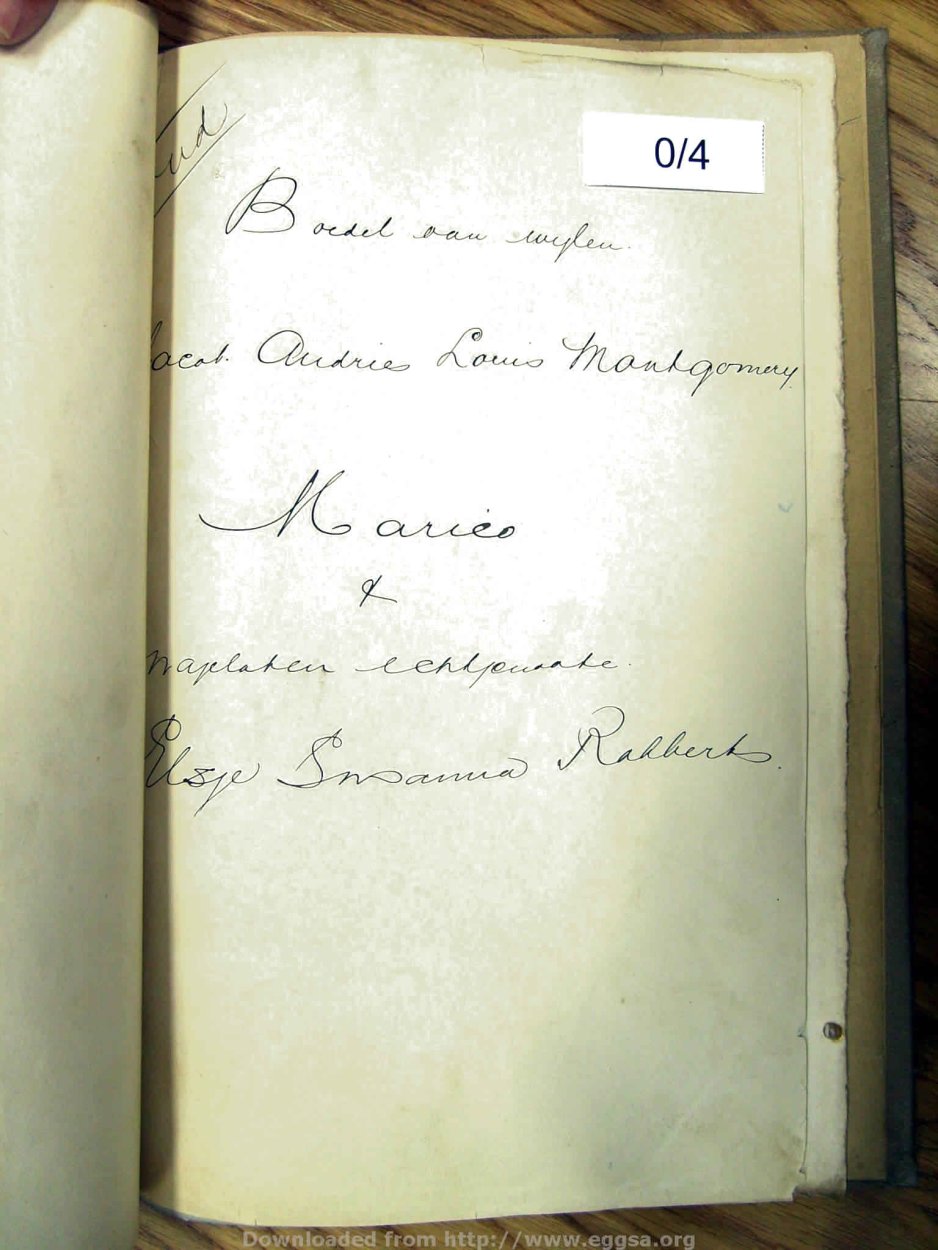 0/4
Boedel van wylen.
Jacob. Andries Louis Montgomery
Marico
&
naplaten echtgenoote.
Elsje Susanna Robberts.
Downloaded from http://www.eggsa.org